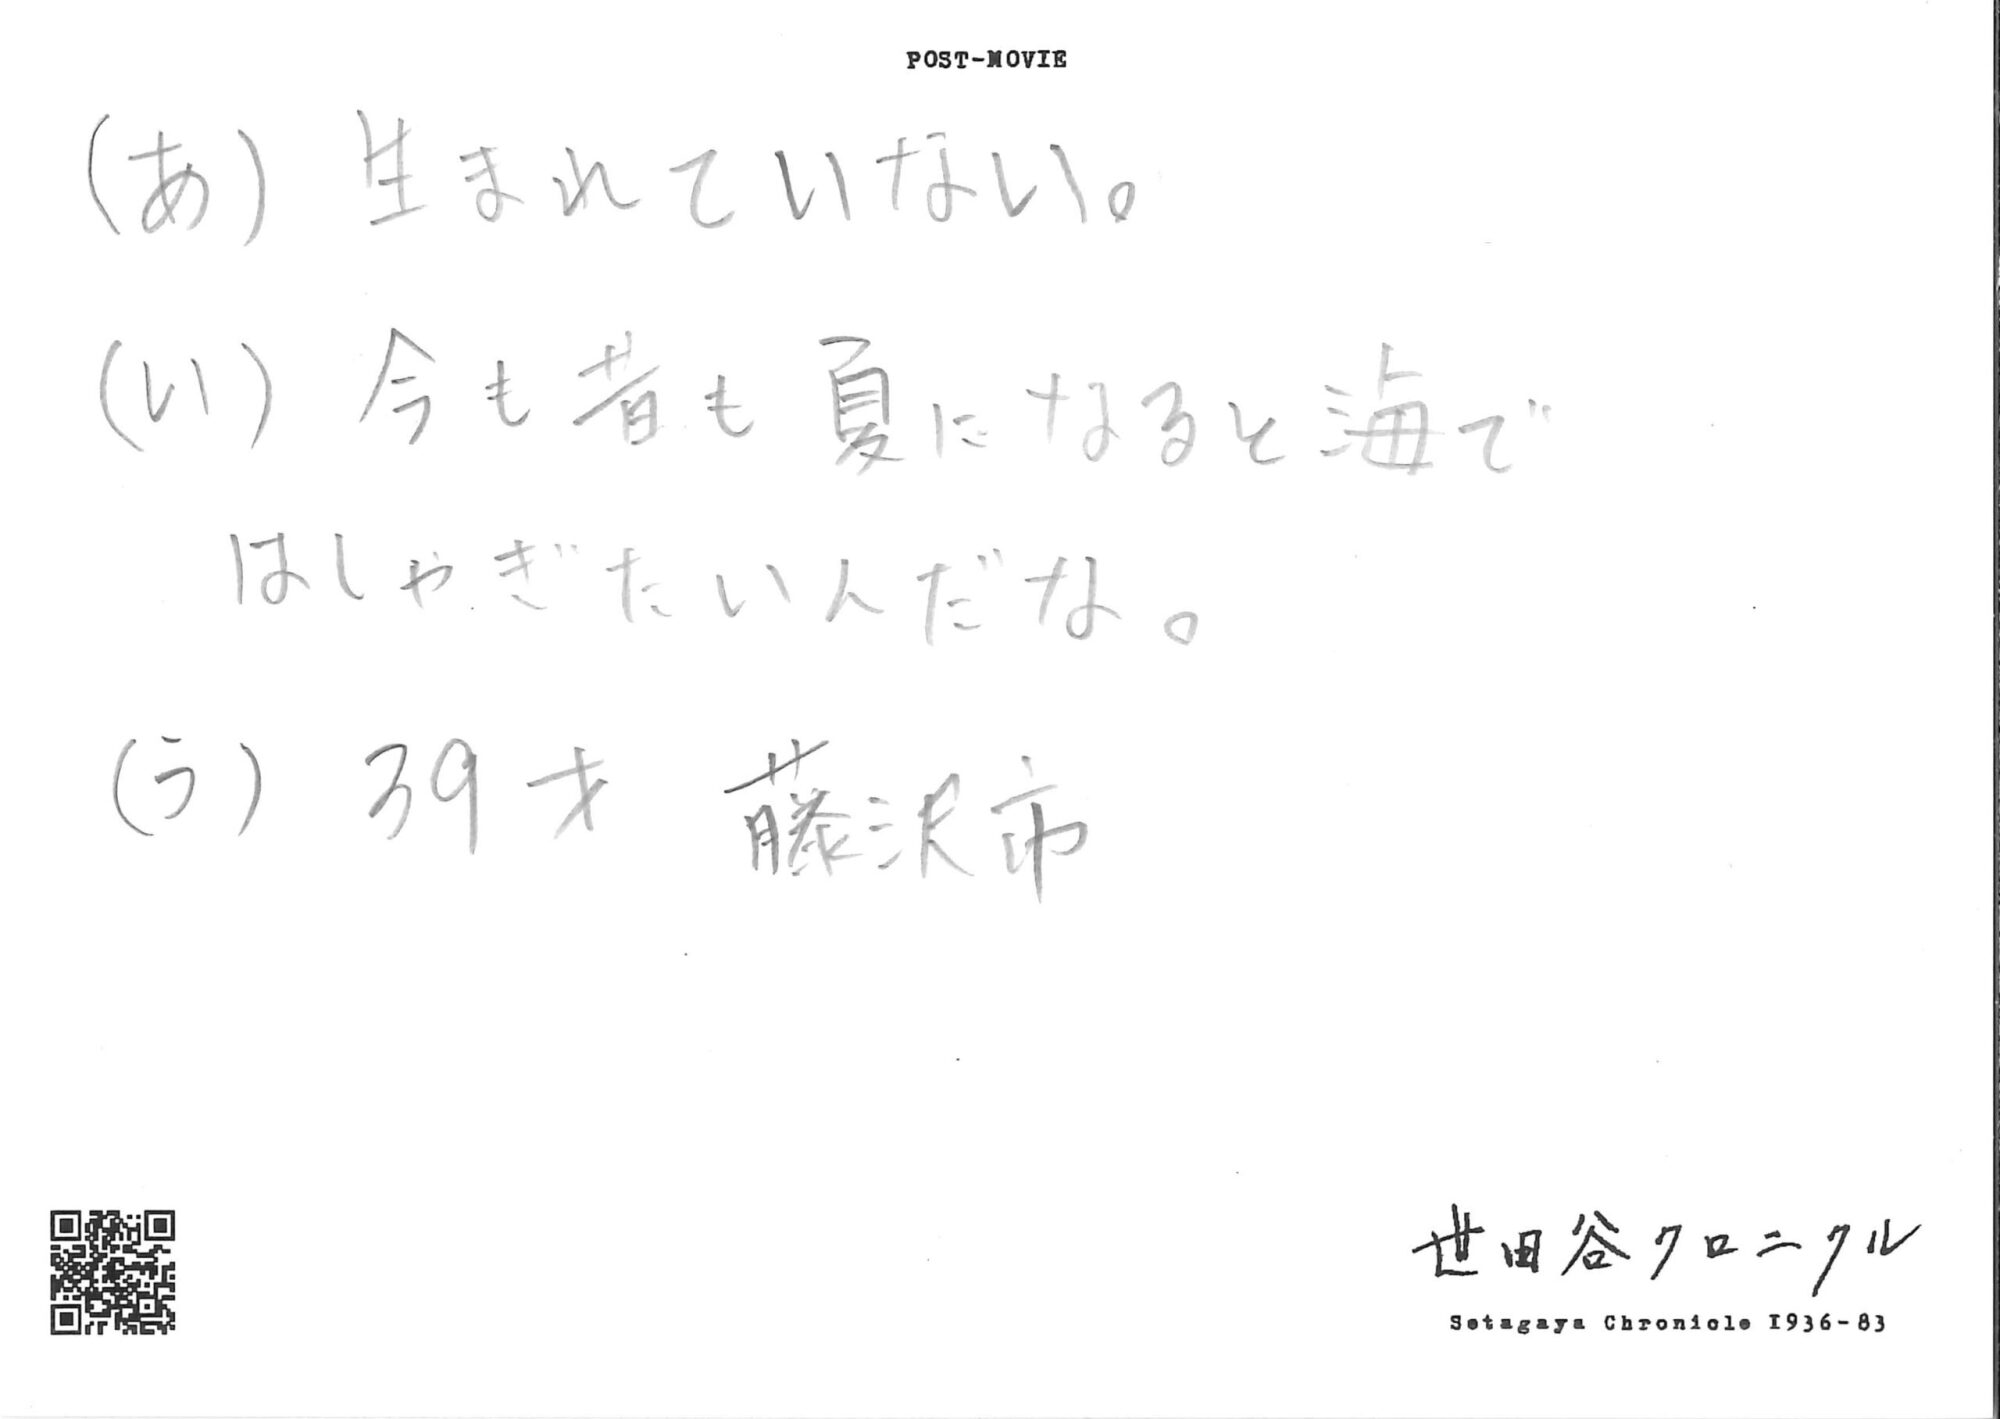 POST-MOVIE
(あ) 生まれていない。
(い) 今も昔も夏になると海で
はしゃぎたい人だな。
(う) 39才 藤沢市
世田谷クロニクル
Setagaya Chronicle 1936-83